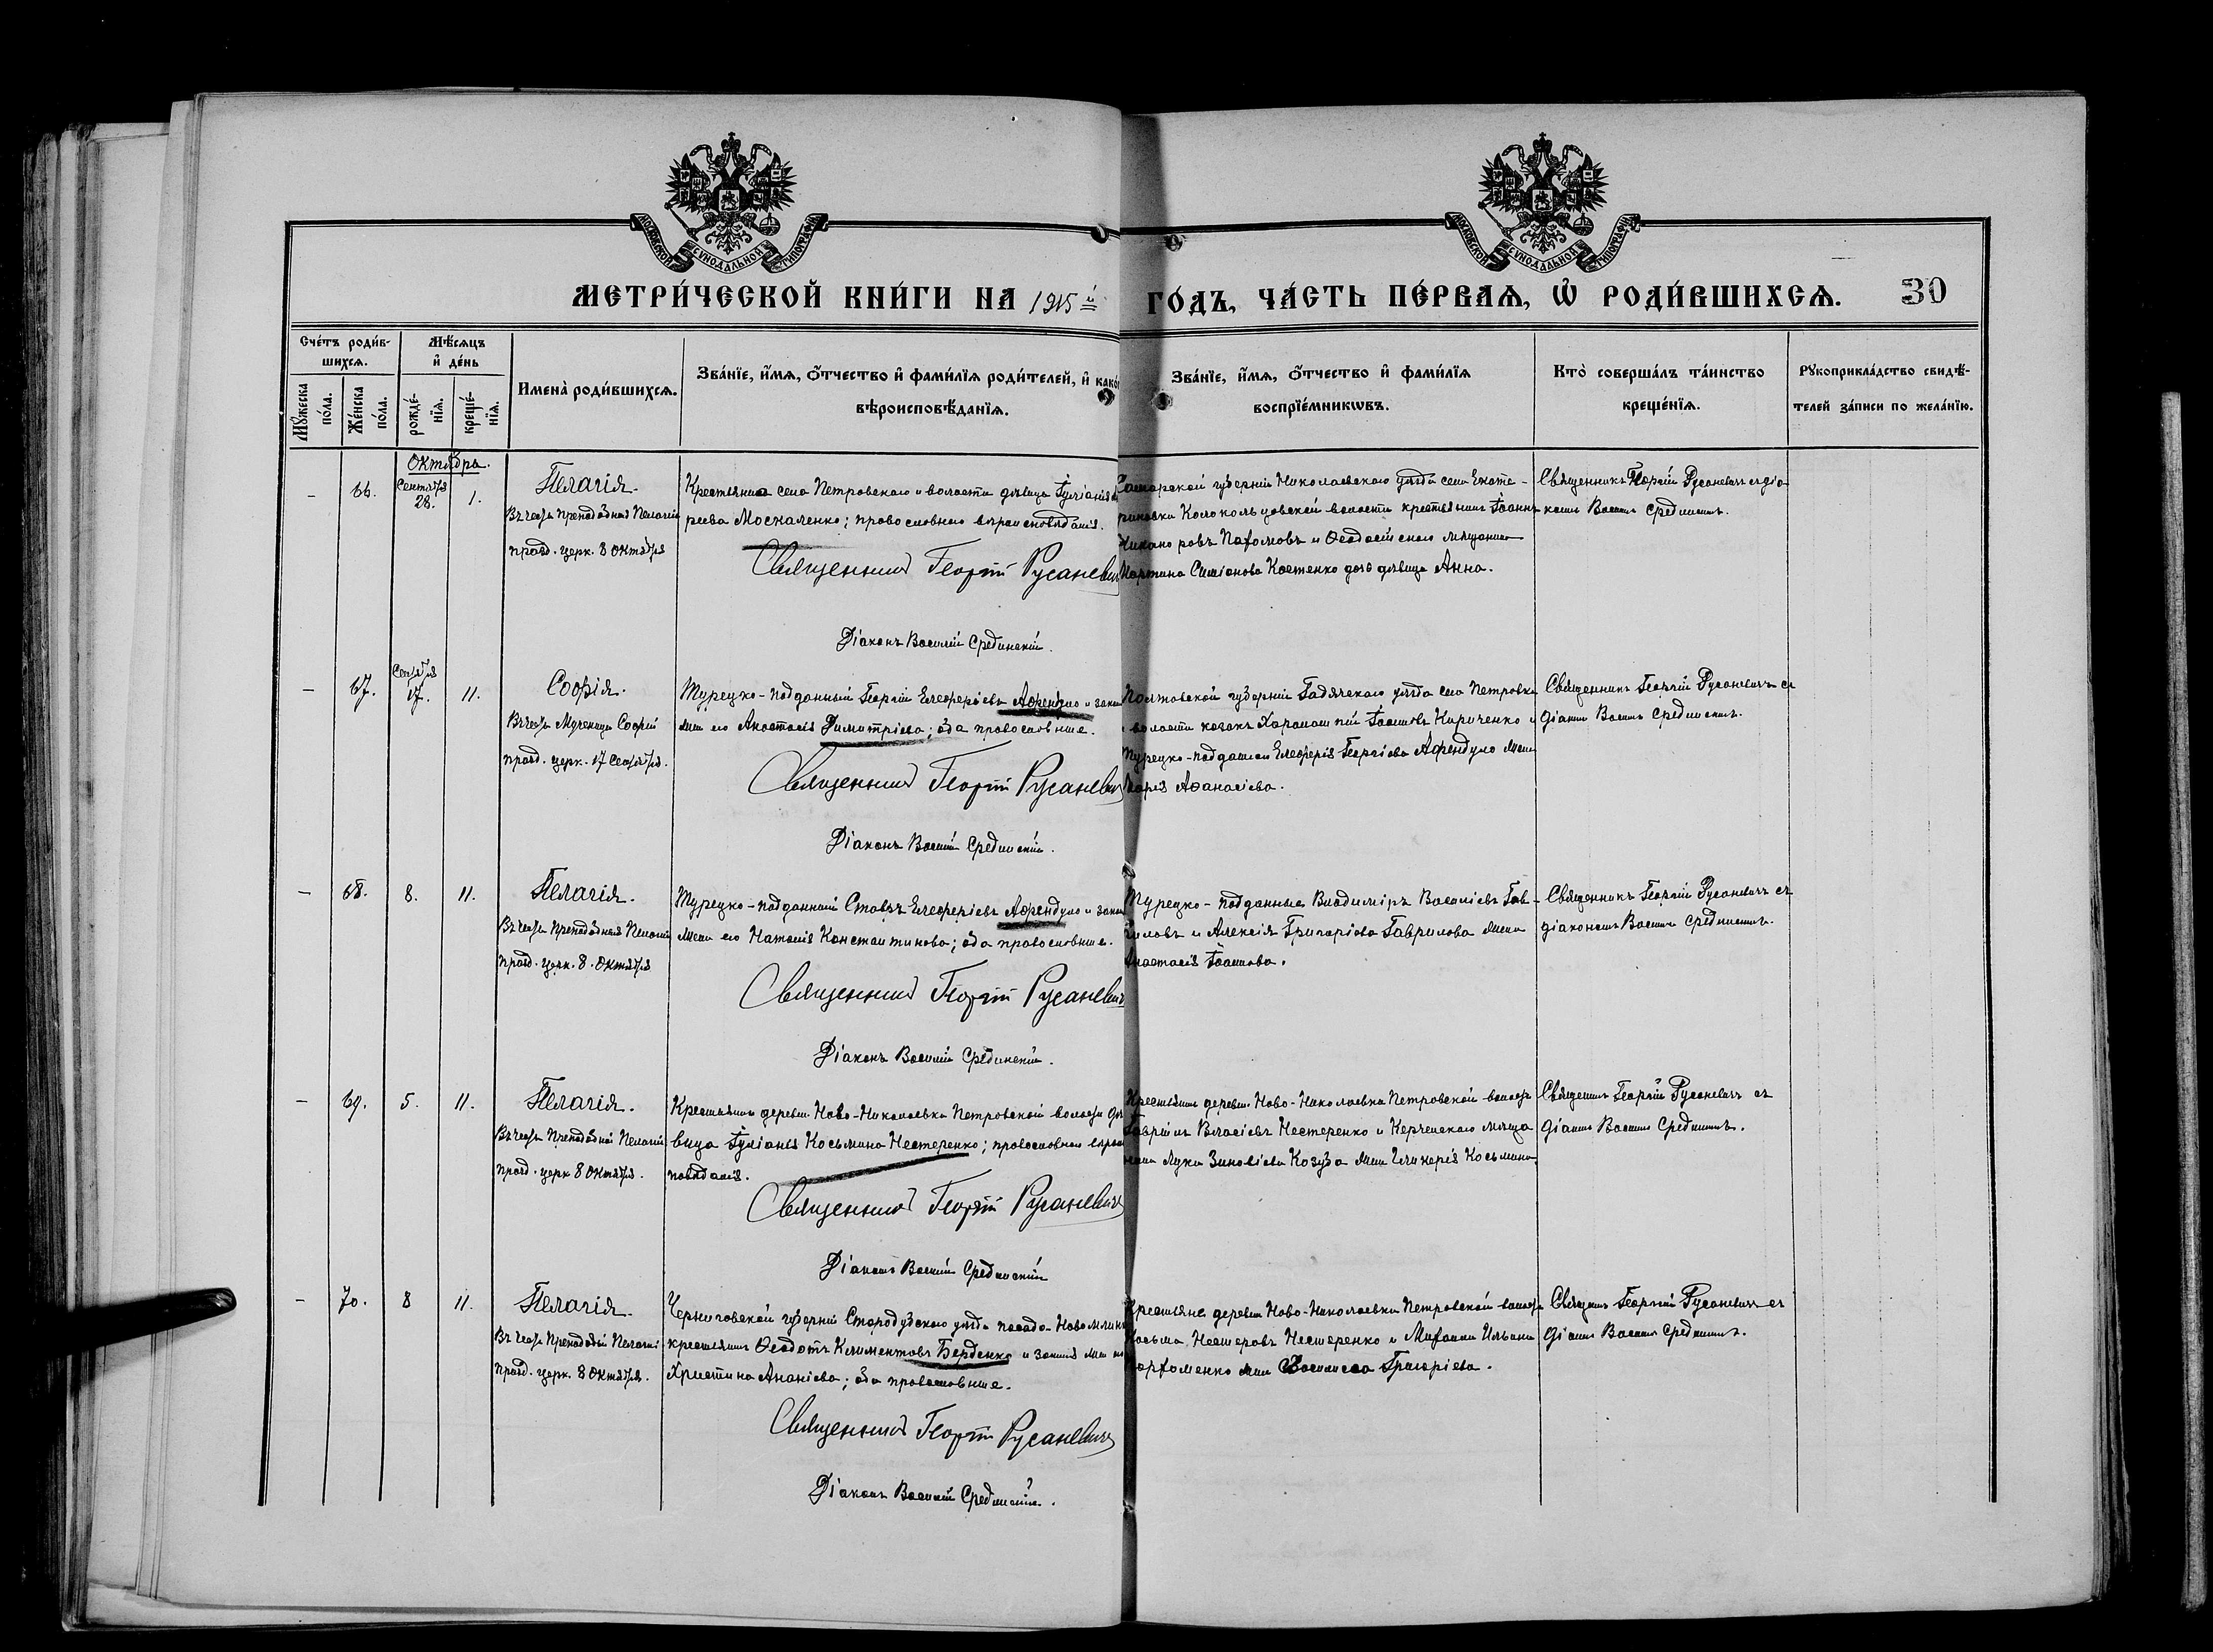 МОСКОВСКОЙ СѴНОДАЛЬНОЙ ТИПОГРАФІИ
МОСКОВСКОЙ СѴНОДАЛЬНОЙ ТИПОГРАФІИ
МЕТРИ́ЧЕСКОЙ КНИ́ГИ НА 1915й ГО́ДЪ, ЧА́СТЬ ПЕ́РВАѦ, Ѡ҆ РОДИ́ВШИХСѦ. 30
Сче́тъ роди́в-
шихсѧ.
Мꙋ́жеска по́ла.
Же́нска по́ла.
Мѣ́сѧцъ
и҆ де́нь
рожде́-
нїѧ.
креще́-
нїѧ.
Имена̀ роди́вшихсѧ.
Зва́нїе, и҆́мѧ, ѻ҆́тчество и҆ фами́лїѧ роди́телей, и҆ како́
вѣроисповѣ́данїѧ.
Зва́нїе, и҆́мѧ, ѻ҆́тчество и҆ фами́лїѧ
воспрїе́мникѡвъ.
Кто̀ соверша́лъ та́инство
креще́нїѧ.
Рꙋкоприкла́дство свидѣ́-
телей за́писи по жела́нїю.
Октября.
- 66. Сентября 28. 1.
Пелагія.
Въ честь Преподобныя Пелагіи
празд. церк. 8 Октября
Крестьянка села Петровскаго и волости дѣвица Іуліанія
рьева Москаленко; православнаго вѣроисповѣданія.
Священникъ Георгій Русаневичъ
Діаконъ Василій Срединскій.
Самарской губерніи Николаевскаго уѣзда села Екате-
риновки Колокольцовской волости крестьянинъ Іоаннъ
Никаноровъ Пахомовъ и Ѳеодосійскаго мѣщанина
Мартина Симіонова Костенко дочь дѣвица Анна.
Священникъ Георгій Русаневичъ съ діа-
кономъ Василіемъ Срединскимъ.
- 67. Сентября 17. 11.
Софія.
Въ честь Мученицы Софіи
празд. церк. 17 Сентября.
Турецко-подданный Георгій Елевферіевъ Афендуло и закон
жена его Анастасія Димитріева; оба православные.
Священникъ Георгій Русаневичъ
Діаконъ Василій Срединскій.
Полтавской губерніи Гадячскаго уѣзда села Петровки
и волости казакъ Харлампій Іоанновъ Кириченко и
Турецко-подданнаго Елевферія Георгіева Афендуло жена
Марія Аѳанасіева.
Священникъ Георгій Русаневичъ съ
діакономъ Василіемъ Срединскимъ.
- 68. 8. 11.
Пелагія.
Въ честь Преподобныя Пелагіи
празд. церк. 8. Октября
Турецко-подданный Ставръ Елевферіевъ Афендуло и закон
жена его Наталія Константинова; оба православные.
Священникъ Георгій Русаневичъ
Діаконъ Василій Срединскій.
Турецко-подданные Владиміръ Василіевъ Гав-
риловъ и Алексія Григоріева Гаврилова жена
Анастасія Іоаннова.
Священникъ Георгій Русаневичъ съ
діакономъ Василіемъ Срединскимъ.
- 69. 5. 11.
Пелагія.
Въ честь Преподобной Пелагіи
празд. церк 8 Октября.
Крестьянка деревни Ново-Николаевки Петровской волости дѣ
вица Іуліанія Косьмина Нестеренко; православнаго вѣроис
повѣданія.
Священникъ Георгій Русаневичъ
Діаконъ Василій Срединскій
Крестьянинъ деревни Ново-Николаевки Петровской волости
Гавріилъ Власіевъ Нестеренко и Керченскаго мѣща
нина Луки Зиновіева Козуба жена Гликерія Косьмина.
Священникъ Георгій Русаневичъ съ
діакономъ Василіемъ Срединскимъ.
- 70. 8 11.
Пелагія.
Въ честь Преподобной Пелагіи
празд. церк. 8 Октября.
Черниговской губерніи Стародубскаго уѣзда посада Новомлинка
крестьянинъ Ѳеодотъ Климентовъ Берденко и законная жена его
Христина Ананіева; оба православные.
Священникъ Георгій Русаневичъ
Діаконъ Василій Срединскій.
Крестьяне деревни Ново-Николаевки Петровской волости
Косьма Несторовъ Нестеренко и Михаила Ильина
Пархоменко жена Василисса Григоріева.
Священникъ Георгій Русаневичъ съ
діакономъ Василіемъ Срединскимъ.